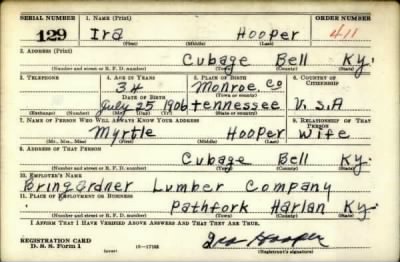 SERIAL NUMBER 1. NAME (Print) ORDER NUMBER
129 Ira Hooper 411
(First) (Middle) (Last)
2. ADDRESS (Print)
Cubage Bell Ky.
(Number and street or R. F. D. number) (Town) (County) (State)
3. TELEPHONE 4. AGE IN YEARS 5. PLACE OF BIRTH 6. COUNTRY OF CITIZENSHIP
34 Monroe Co
DATE OF BIRTH (Town or county)
July 25 1906 tennessee U.S.A
(Exchange) (Number) (Mo.) (Day) (Yr.) (State or country)
7. NAME OF PERSON WHO WILL ALWAYS KNOW YOUR ADDRESS 8. RELATIONSHIP OF THAT PERSON
Myrtle Hooper Wife
(Mr., Mrs., Miss) (First) (Middle) (Last)
9. ADDRESS OF THAT PERSON
Cubage Bell Ky.
(Number and street or R. F. D. number) (Town) (County) (State)
10. EMPLOYER'S NAME
Bringardner Lumber Company
11. PLACE OF EMPLOYMENT OR BUSINESS
Pathfork Harlan Ky.
(Number and street or R. F. D. number) (Town) (County) (State)
I AFFIRM THAT I HAVE VERIFIED ABOVE ANSWERS AND THAT THEY ARE TRUE.
REGISTRATION CARD
D. S. S. Form 1 Ira Hooper
(Registrant's signature)